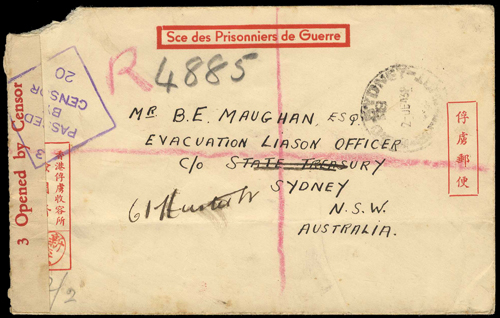 Sce des Prisonniers de Guerre
R 4885
PASSED
BY
CENSOR
20
3
SYDNEY
MR B.E. MAUGHAN, ESQ.
EVACUATION LIASON OFFICER
C/O STATE TREASURY
SYDNEY
N.S.W.
AUSTRALIA.
61
俘虜郵便
香港俘虜收容所
3 Opened by Censor
/2